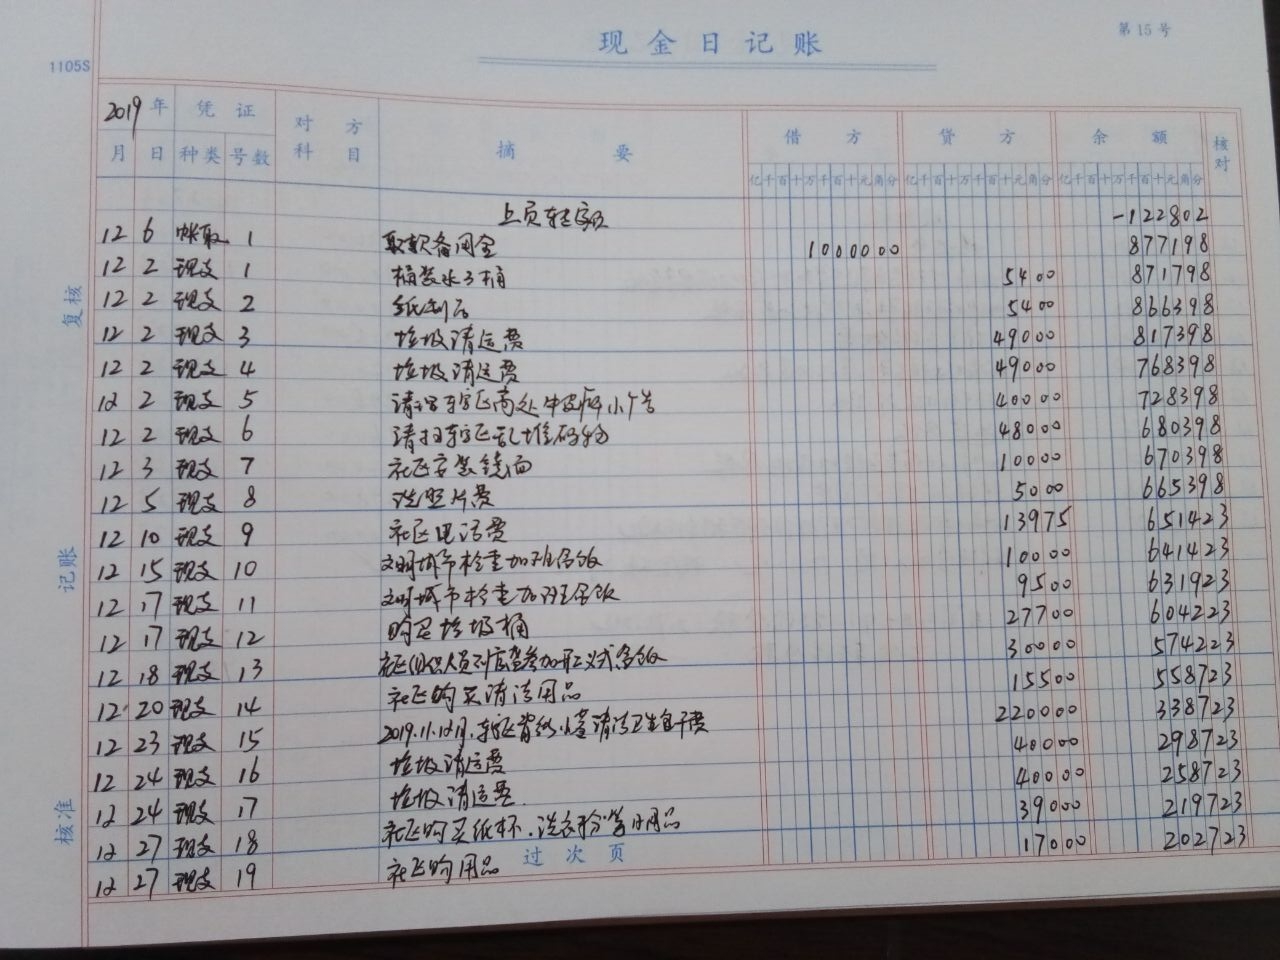 现金日记账
第15号
1105S
2019年 凭证 对方科目 摘要 借方 贷方 余额 核对
月 日 种类 号数 亿千百十万千百十元角分 亿千百十万千百十元角分 亿千百十万千百十元角分
上页转 -122802
12 6 取 1 取款备用金 1000000 877198
12 2 现支 1 桶装水3桶 5400 871798
12 2 现支 2 纸制品 5400 866398
12 2 现支 3 垃圾清运费 49000 817398
12 2 现支 4 垃圾清运费 49000 768398
12 2 现支 5 清理辖区高处牛皮癣小广告 40000 728398
12 2 现支 6 清扫辖区乱堆码物 48000 680398
12 3 现支 7 社区安装镜面 10000 670398
12 5 现支 8 洗照片费 5000 665398
12 10 现支 9 社区电话费 13975 651423
12 15 现支 10 文明城市检查加班餐饭 10000 641423
12 17 现支 11 文明城市检查加班餐饭 9500 631923
12 17 现支 12 购买垃圾桶 27700 604223
12 18 现支 13 社区组织人员到参加仪式餐饭 30000 574223
12 20 现支 14 社区购买清洁用品 15500 558723
12 23 现支 15 2019.11.12月.辖区背街小巷清洁卫生包干费 220000 338723
12 24 现支 16 垃圾清运费 40000 298723
12 24 现支 17 垃圾清运费. 40000 258723
12 27 现支 18 社区购买纸杯.洗衣粉等用品 39000 219723
12 27 现支 19 社区购用品 17000 202723
过次页
复核
记账
核准